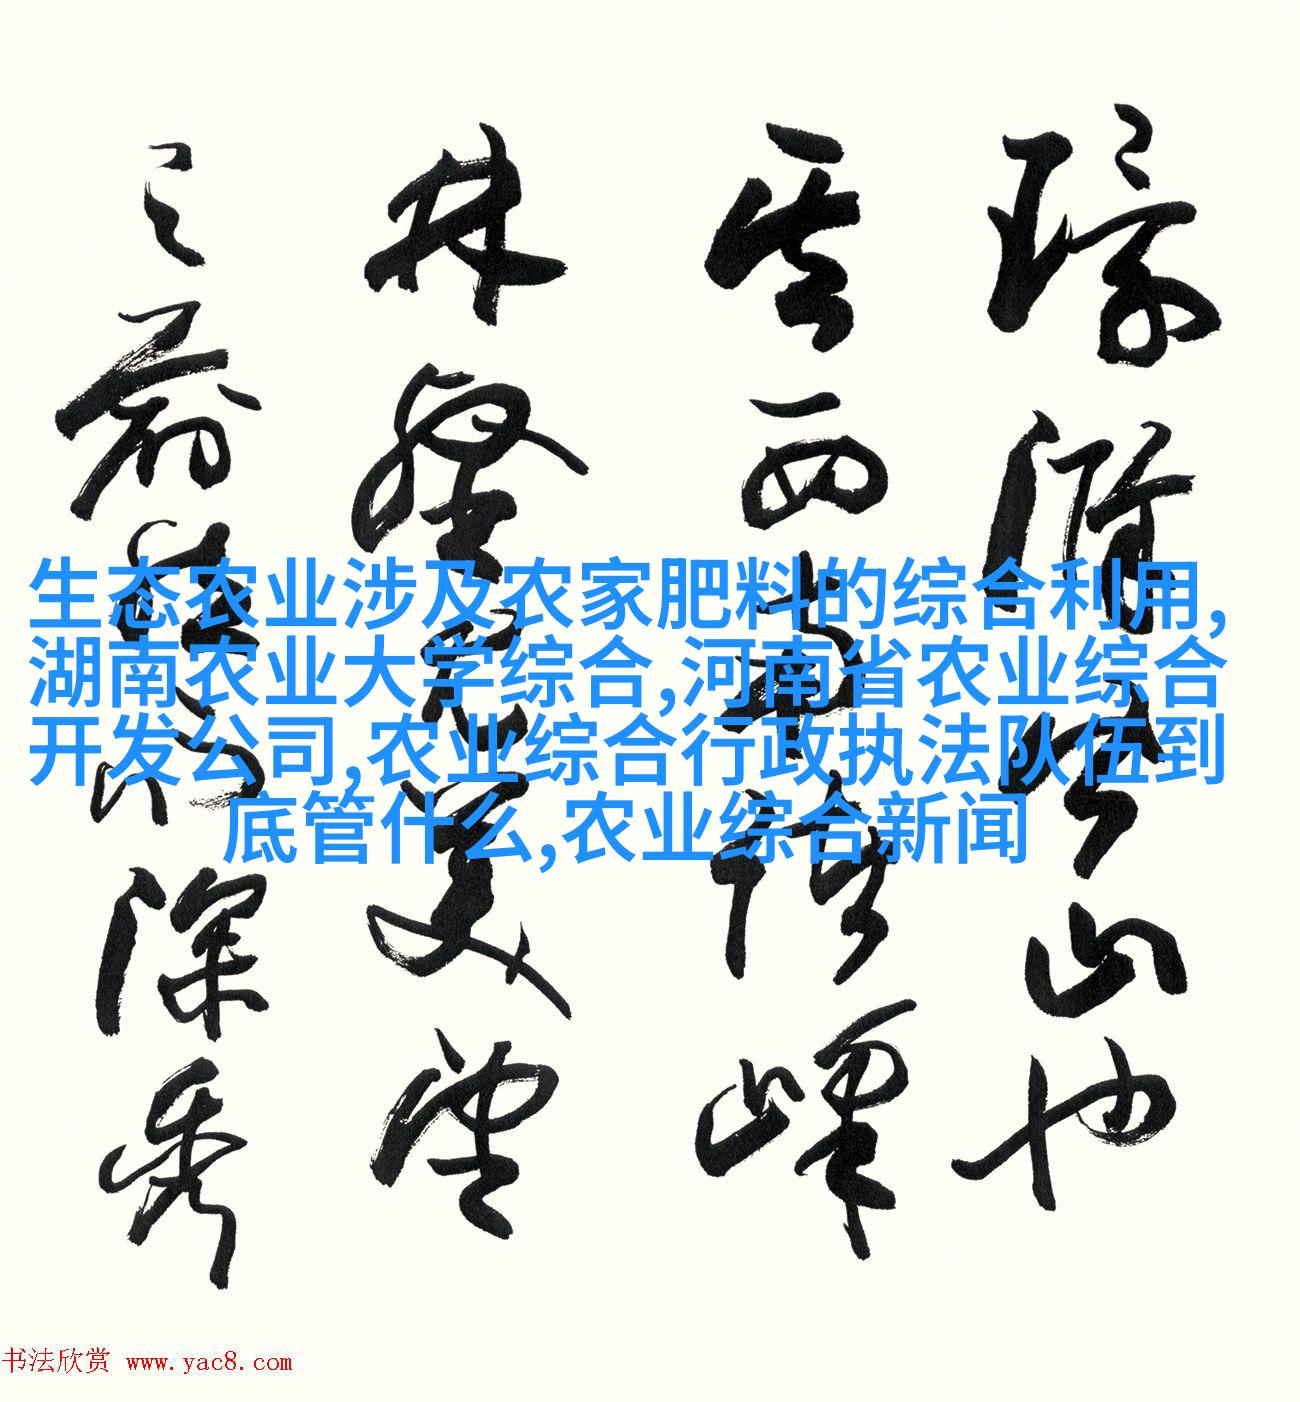 環滁皆山也
其西南諸峰
林壑尤美望
之蔚然而深秀
生态农业涉及农家肥料的综合利用,
湖南农业大学综合,河南省农业综合
开发公司,农业综合行政执法队伍到
底管什么,农业综合新闻
书法欣赏 www.yac8.com